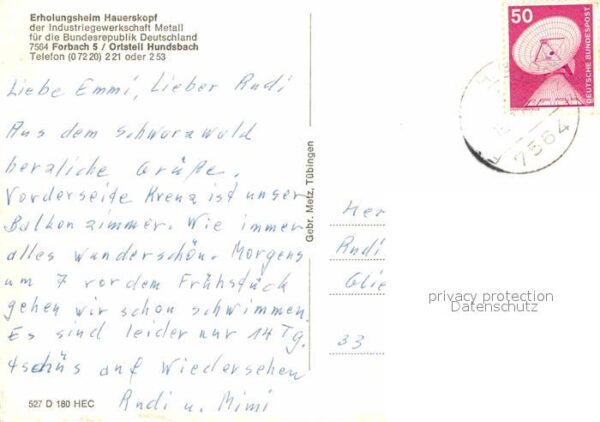 Erholungsheim Hauerskopf
der Industriegewerkschaft Metall
für die Bundesrepublik Deutschland
7564 Forbach 5 / Ortsteil Hundsbach
Telefon (07220) 221 oder 253
Liebe Emmi, Lieber Rudi
Aus dem Schwarzwald
herzliche Grüße.
Vorderseite Kreuz ist unser
Balkonzimmer. Wie immer
alles wunderschön. Morgens
um 7 vor dem Frühstück
gehen wir schon schwimmen.
Es sind leider nur 14 Tg.
tschüs auf Wiedersehen
Rudi u. Mimi
527 D 180 HEC
Gebr. Metz, Tübingen
50
DEUTSCHE BUNDESPOST
7564
Her
Rudi
Glie
33
privacy protection
Datenschutz